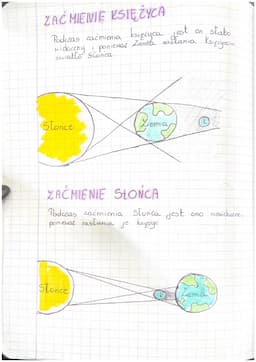 ZAĆMIENIE KSIĘŻYCA
Podczas zaćmienia księżyca jest on słabo
widoczny, ponieważ Ziemia zasłania Księżycow
światło słońca.
Słońce
Ziemia
ZAĆMIENIE SŁOŃCA
Podczas zaćmienia Słońca jest ono
ponieważ zasłania je księżyc
Słońce
Ziemia